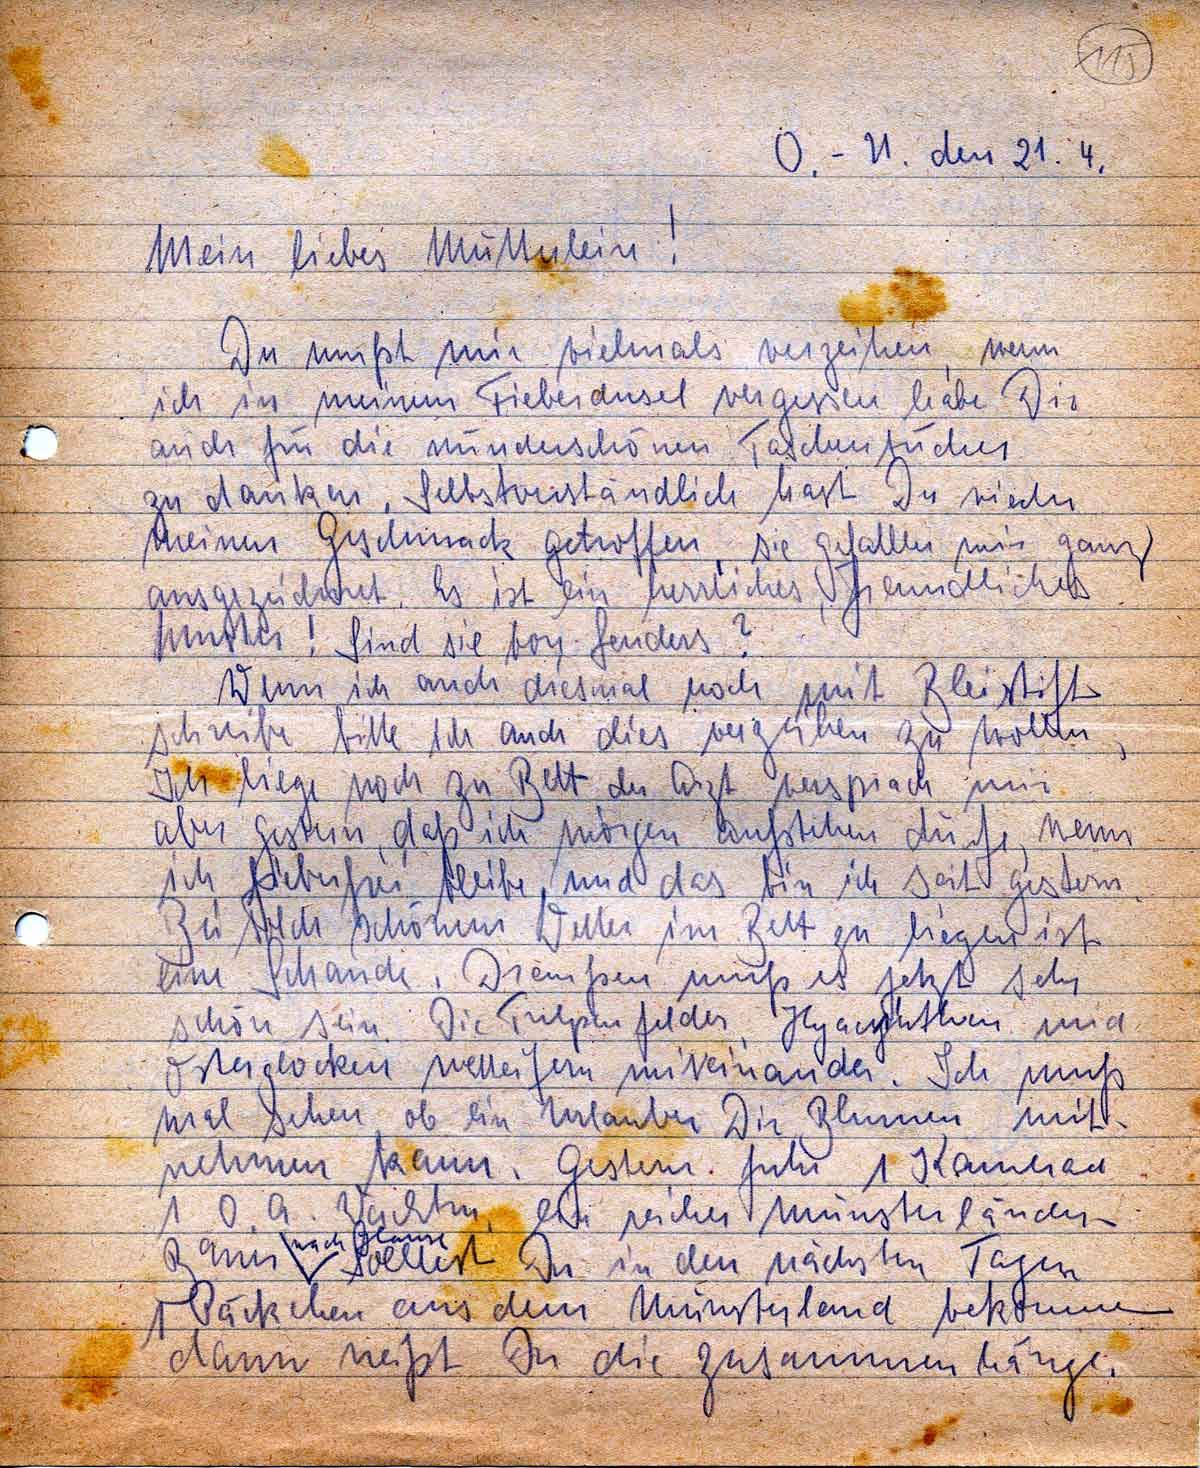 115
O.-U. den 21. 4.
Mein liebes Mütterlein!
Du mußt mir vielmals verzeihen, wenn
ich in meinem Fieberdusel vergessen habe Dir
auch für die wunderschönen Taschentücher
zu danken. Selbstverständlich hast Du wieder
meinen Geschmack getroffen, sie gefallen mir ganz
ausgezeichnet. Es ist ein herrliches, freundliches
Muster! Sind sie von Senders?
Wenn ich auch diesmal noch mit Bleistift
schreibe bitte ich auch dies verzeihen zu wollen,
Ich liege noch zu Bett der Arzt versprach mir
aber gestern, daß ich morgen aufstehen dürfe, wenn
ich fieberfrei bleibe, und das bin ich seit gestern.
Bei solch schönem Wetter im Bett zu liegen ist
eine Schande. Draußen muß es jetzt sehr
schön sein. Die Tulpenfelder, Hyazinthen und
Osterglocken wetteifern miteinander. Ich muß
mal sehen, ob ein Urlauber Dir Blumen mit-
nehmen kann. Gestern fuhr 1 Kamerad
1 O.A. Wachtm. ein reicher Münsterländer
nach Hause
Bauer Solltest Du in den nächsten Tagen
1 Päckchen aus dem Münsterland bekommen
dann weißt Du die zusammenhänge.